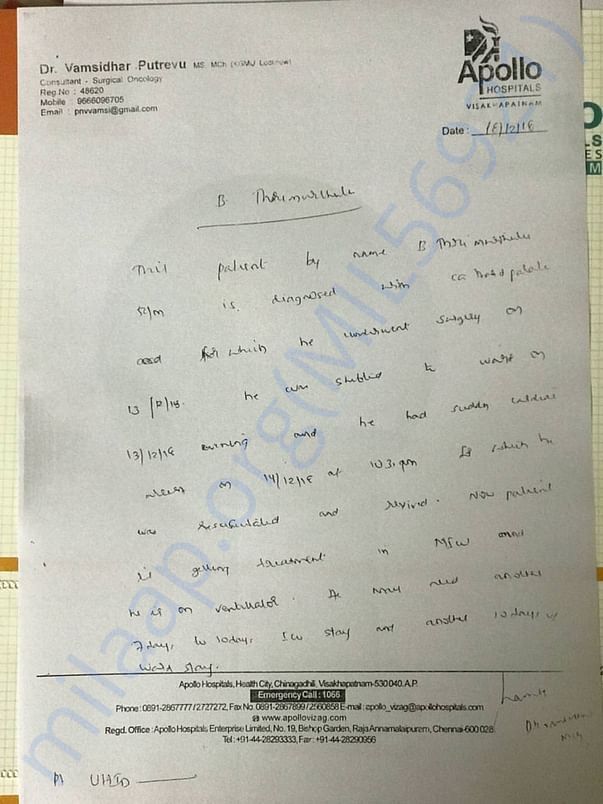 Dr. Vamsidhar Putrevu MS, MCh (KGMU Lucknow)
Consultant - Surgical Oncology
Reg.No : 48620
Mobile : 9666096705
Email : pnvvamsi@gmail.com
Apollo
HOSPITALS
VISAKHAPATNAM
Date : 18/12/18
B. Thrimurthulu
This patient by name B Thrimurthulu
is diagnosed with ca hard palate
and for which he underwent surgery on
13/12/18. he was shifted to ward on
13/12/18 evening and he had sudden cardiac
arrest on 14/12/18 at which he
was resuscitated and revived. Now patient
is getting treatment in and
he is on ventilator. He may need another
7 days to 10 days ICU stay and another 10 days
ward stay.
Apollo Hospitals, Health City, Chinagadhili, Visakhapatnam-530 040. A.P.
Emergency Call : 1066
Phone : 0891-2867777 / 2727272, Fax No. 0891-2867899 / 2560858 E-mail : apollo_vizag@apollohospitals.com
www.apollovizag.com
Regd. Office : Apollo Hospitals Enterprise Limited, No. 19, Bishop Garden, Raja Annamalaipuram, Chennai-600 028
Tel : +91-44-28293333, Fax : +91-44-28290956
UHID
milaap.org(MIL56927)